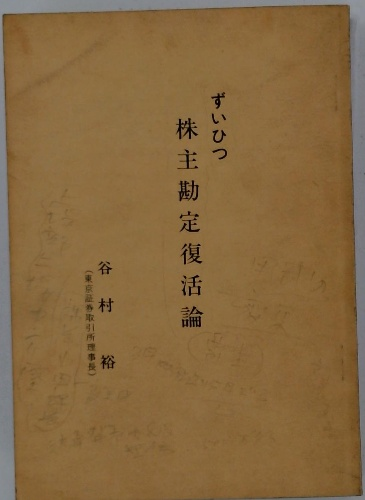 ずいひつ
株主勘定復活論
谷村裕
（東京証券取引所理事長）